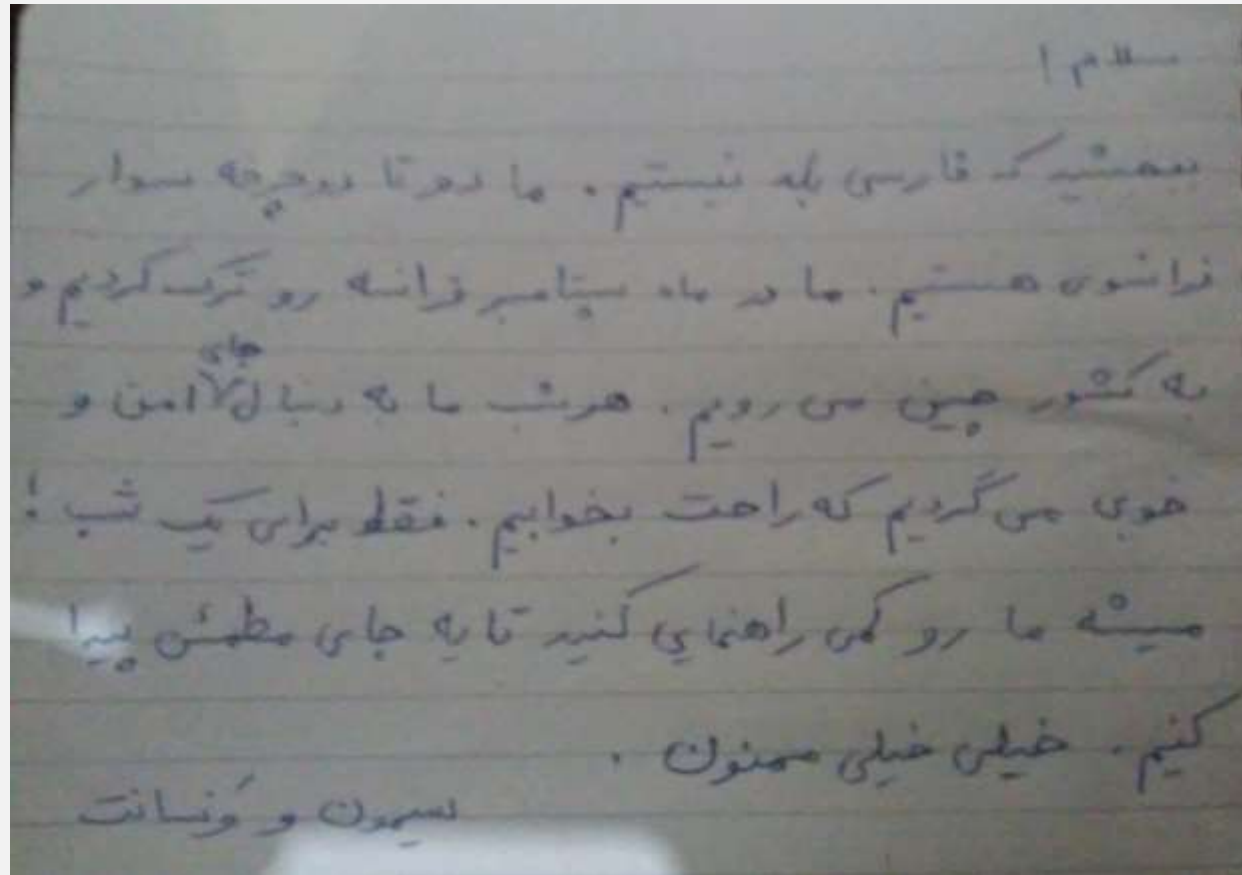 سلام !
ببخشید که فارسی بلد نیستیم. ما دو تا دوچرخه سوار
فرانسوی هستیم. ما در ماه سپتامبر فرانسه رو ترک کردیم و
به کشور چین می رویم. هر شب ما به دنبال جای امن و
خوبی می گردیم که راحت بخوابیم. فقط برای یک شب !
میشه ما رو کمی راهنمایی کنید تا یه جای مطمئن پیدا
کنیم. خیلی خیلی ممنون.
سیمون و ونسانت